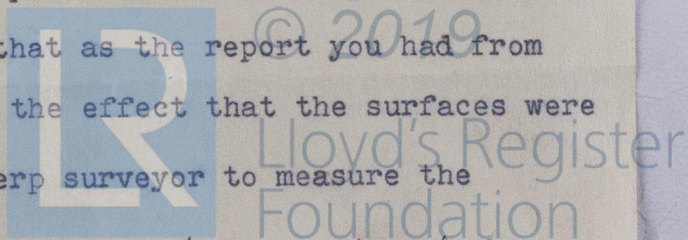 that as the report you had from
the effect that the surfaces were
erp surveyor to measure the
© 2019
Lloyd's Register
Foundation
LR